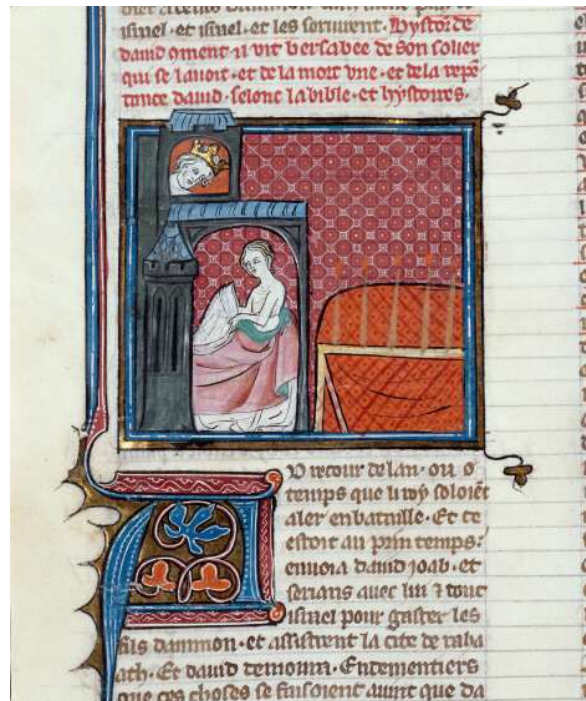 israel · et israel · et les seruirent. Hystoire de
dauid ꝯment il vit bersabee de son solier
qui se lauoit · et de la mort vrie · et de la repē
tance dauid · selonc la bible · et hystoires ·
AU retour de lan · ou
temps que li roy soloiēt
aler en bataille · Et ce
estoit au prin temps :
enuoia dauid ioab · et
serians auec lui ⁊ tout
israel pour gaster les
fils dammon · et assistrent la cite de raba
ath · Et dauid demoura · Entementiers
que ces choses se faisoient auint que da